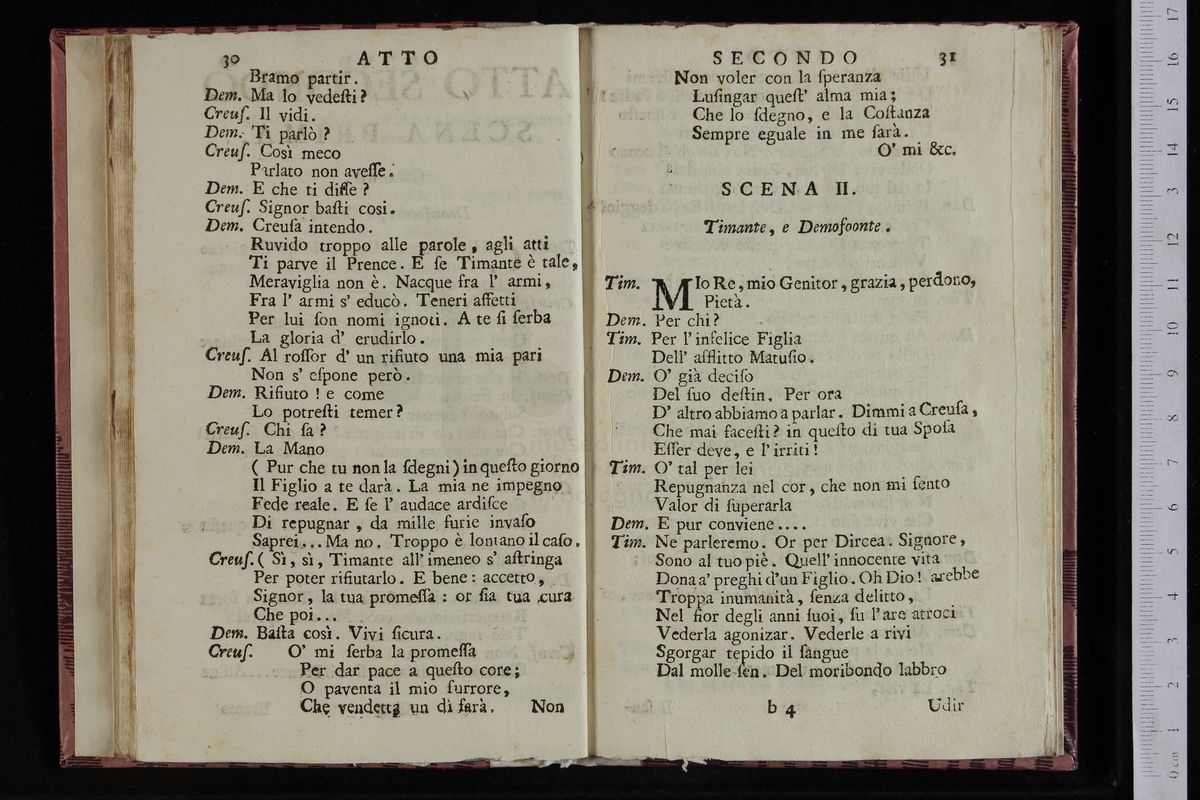 30 ATTO
Bramo partir.
Dem. Ma lo vedeſti?
Creuſ. Il vidi.
Dem. Ti parlò?
Creuſ. Così meco
Parlato non aveſſe.
Dem. E che ti diſſe?
Creuſ. Signor baſti cosi.
Dem. Creuſa intendo.
Ruvido troppo alle parole, agli atti
Ti parve il Prence. E ſe Timante è tale,
Meraviglia non è. Nacque fra l' armi,
Fra l' armi s' educò. Teneri affetti
Per lui ſon nomi ignoti. A te ſi ſerba
La gloria d' erudirlo.
Creuſ. Al roſſor d' un rifiuto una mia pari
Non s' eſpone però.
Dem. Rifiuto! e come
Lo potreſti temer?
Creuſ. Chi ſa?
Dem. La Mano
(Pur che tu non la ſdegni) in queſto giorno
Il Figlio a te darà. La mia ne impegno
Fede reale. E ſe l' audace ardiſce
Di repugnar, da mille furie invaſo
Saprei... Ma no. Troppo è lontano il caſo.
Creuſ. (Sì, sì, Timante all' imeneo s' aſtringa
Per poter rifiutarlo. E bene: accetto,
Signor, la tua promeſſa: or ſia tua cura
Che poi...
Dem. Baſta così. Vivi ſicura.
Creuſ. O' mi ſerba la promeſſa
Per dar pace a queſto core;
O paventa il mio furrore,
Che vendetta un dì farà. Non
SECONDO 31
Non voler con la ſperanza
Luſingar queſt' alma mia;
Che lo ſdegno, e la Coſtanza
Sempre eguale in me ſarà.
O' mi &c.
SCENA II.
Timante, e Demofoonte.
Tim. MIo Re, mio Genitor, grazia, perdono,
Pietà.
Dem. Per chi?
Tim. Per l' infelice Figlia
Dell' afflitto Matuſio.
Dem. O' già deciſo
Del ſuo deſtin. Per ora
D' altro abbiamo a parlar. Dimmi a Creuſa,
Che mai faceſti? in queſto di tua Spoſa
Eſſer deve, e l' irriti!
Tim. O' tal per lei
Repugnanza nel cor, che non mi ſento
Valor di ſuperarla
Dem. E pur conviene....
Tim. Ne parleremo. Or per Dircea. Signore,
Sono al tuo piè. Quell' innocente vita
Dona a' preghi d'un Figlio. Oh Dio! arebbe
Troppa inumanità, ſenza delitto,
Nel fior degli anni ſuoi, ſu l' are atroci
Vederla agonizar. Vederle a rivi
Sgorgar tepido il ſangue
Dal molle ſen. Del moribondo labbro
b 4 Udir
0 cm 1 2 3 4 5 6 7 8 9 10 11 12 13 14 15 16 17